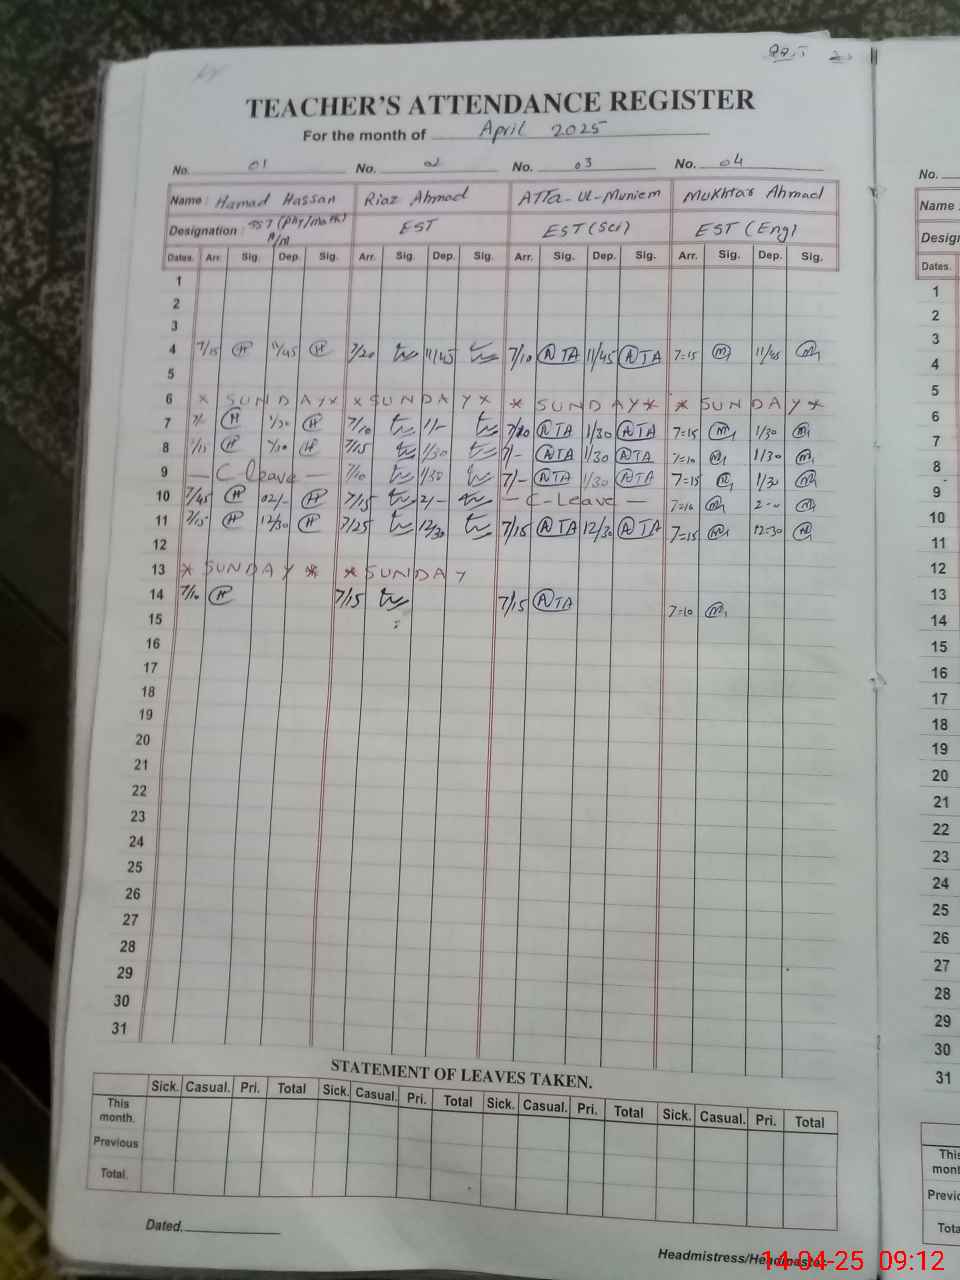 TEACHER'S ATTENDANCE REGISTER
For the month of April 2025
No. 01 No. 02 No. 03 No. 04 No.
Name : Hamad Hassan Riaz Ahmad ATTa-Ul-Muniem Mukhtar Ahmad Name
Designation : SST (Phy/math) EST EST (Sci) EST (Eng)
Dates. Arr. Sig. Dep. Sig. Arr. Sig. Dep. Sig. Arr. Sig. Dep. Sig. Arr. Sig. Dep. Sig. Dates.
1 1
2 2
3 3
4 7/15 H 11/45 H 7/20 11/45 7/10 ATA 11/45 ATA 7=15 M 11/45 M 4
5 5
6 * SUNDAY * * SUNDAY * * SUNDAY * * SUNDAY * 6
7 7/- H 1/30 H 7/10 1/- 7/20 ATA 1/30 ATA 7=15 M 1/30 M 7
8 7/15 H 1/30 H 7/15 1/30 7/- ATA 1/30 ATA 7=10 M 1/30 M 8
9 — C leave — 7/10 1/30 7/- ATA 1/30 ATA 7=15 M 1/30 M 9
10 7/45 H 02/- H 7/15 2/- — C-Leave — 7=10 M M 10
11 7/15 H 12/30 H 7/25 12/30 7/15 ATA 12/30 ATA 7=15 M 12=30 M 11
12 12
13 * SUNDAY * * SUNDAY 13
14 7/10 H 7/15 7/15 ATA 7=10 M 14
15 15
16 16
17 17
18 18
19 19
20 20
21 21
22 22
23 23
24 24
25 25
26 26
27 27
28 28
29 29
30 30
31 31
STATEMENT OF LEAVES TAKEN.
Sick. Casual. Pri. Total Sick. Casual. Pri. Total Sick. Casual. Pri. Total Sick. Casual. Pri. Total
This month.
Previous
Total.
Dated.
Headmistress/Headmaster
14-04-25 09:12